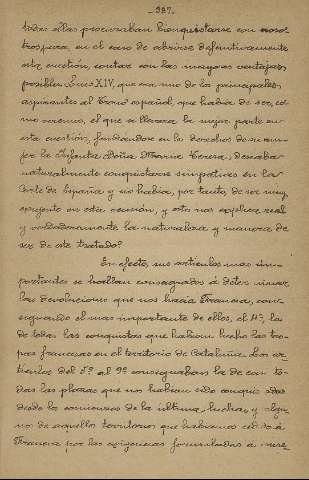 -337.-
todas ellas procuraban bienquistarse con noso
tros para, en el caso de abrirse definitivamente
esta cuestión, contar con las mayores ventajas
posibles. Luis XIV, que era uno de los principales
aspirantes al Trono español, que había de ser, co-
mo veremos, el que se llevara la mejor parte en
esta cuestión, fundándose en los derechos de su mu-
jer la Infanta Doña María Teresa, deseaba
naturalmente conquistarse simpatías en la
Corte de España y no había, por tanto, de ser muy
exigente en esta ocasión, y esto nos explica real
y verdaderamente la naturaleza y manera de
ser de este tratado.
En efecto, sus artículos mas im-
portantes se hallan consagrados á determinar
las devoluciones que nos hacía Francia, con-
signando el mas importante de ellos, el 4º, la
de todas las conquistas que habían hecho las tro-
pas francesas en el territorio de Cataluña. Los ar-
tículos del 5º al 9º consignaban la de con to-
das las plazas que nos habían sido conquistadas
desde el comienzo de la última lucha, y algu-
no de aquellos territorios que habíamos cedido á
Francia por las exigencias formuladas á nues-